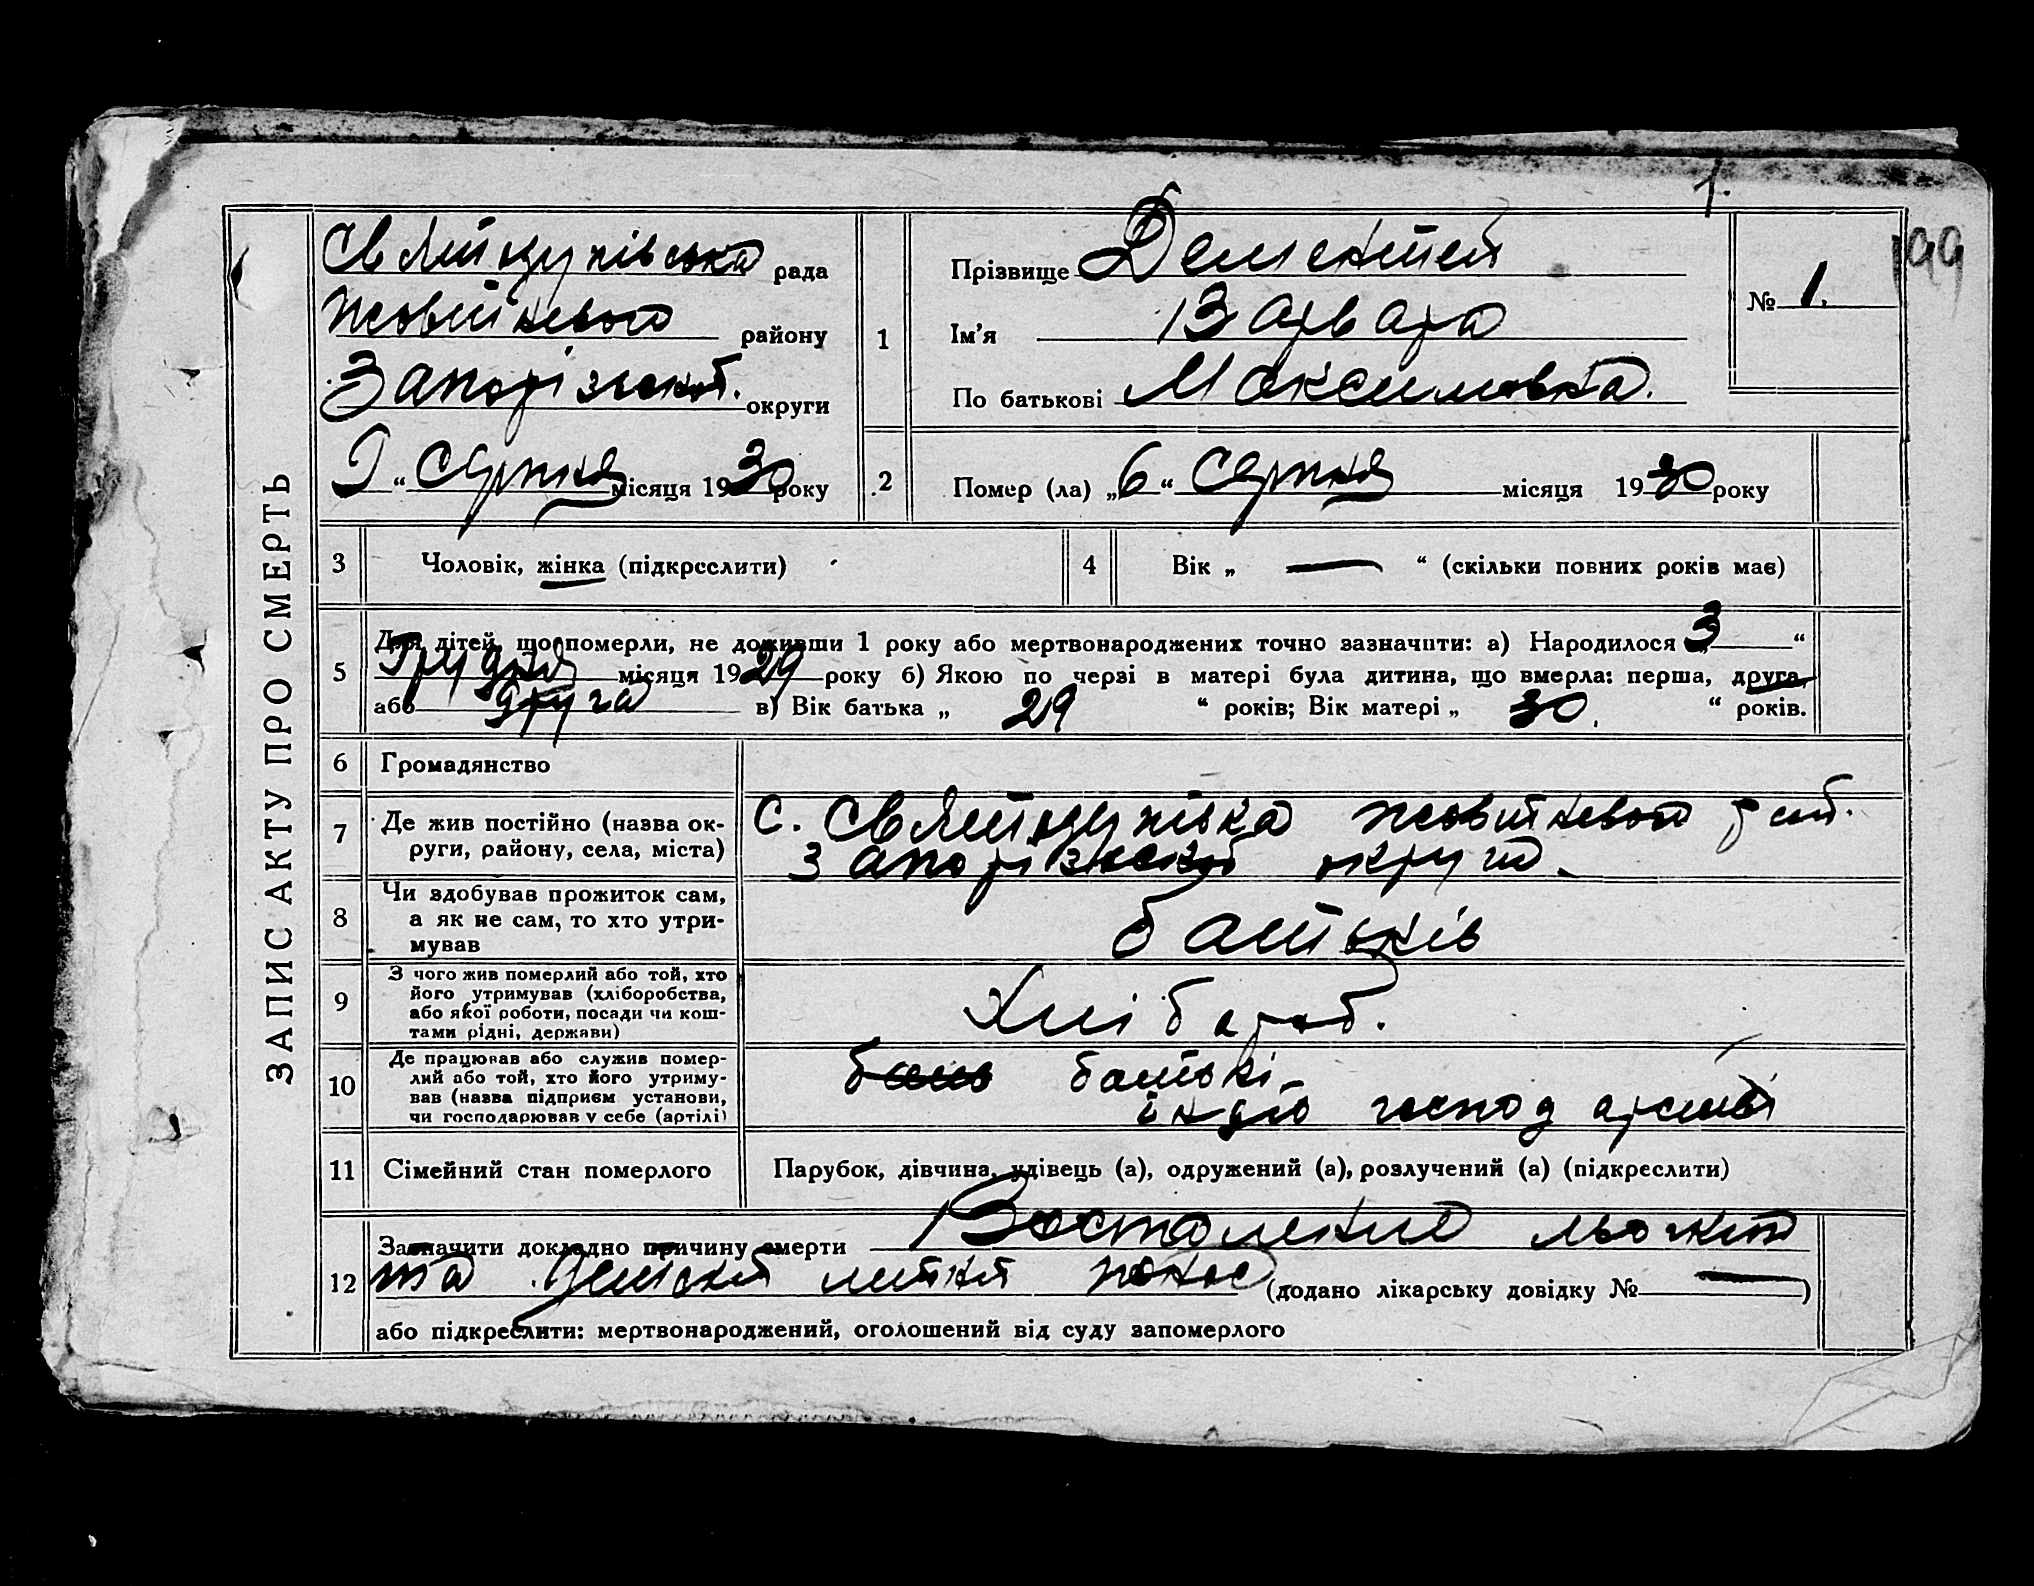 1.
199
ЗАПИС АКТУ ПРО СМЕРТЬ
рада
району
Запорізької округи
9 “ Серпня місяця 1930 року
1
Прізвище Дементей
Ім’я Варвара
По батькові Максимовна.
№ 1.
2 Помер (ла) „6“ Серпня місяця 1930 року
3 Чоловік, жінка (підкреслити)
4 Вік „ — “ (скільки повних років має)
5 Для дітей, що померли, не доживши 1 року або мертвонароджених точно зазначити: а) Народилося „3“
Грудня місяця 1929 року б) Якою по черзі в матері була дитина, що вмерла: перша, друга,
або друга в) Вік батька „ 29 “ років; Вік матері „ 30. “ років.
6 Громадянство
7 Де жив постійно (назва ок-
руги, району, села, міста)
с.
Запорізької округи.
8 Чи здобував прожиток сам,
а як не сам, то хто утри-
мував
батьків
9 З чого жив померлий або той, хто
його утримував (хліборобства,
або якої роботи, посади чи кош-
тами рідні, держави)
Хлібароб.
10 Де працював або служив помер-
лий або той, хто його утриму-
вав (назва підприєм установи,
чи господарював у себе (артілі)
батькі
господарстві
11 Сімейний стан померлого
Парубок, дівчина, удівець (а), одружений (а), розлучений (а) (підкреслити)
12 Зазначити докладно причину смерти
та понос (додано лікарську довідку № — )
або підкреслити: мертвонароджений, оголошений від суду запомерлого